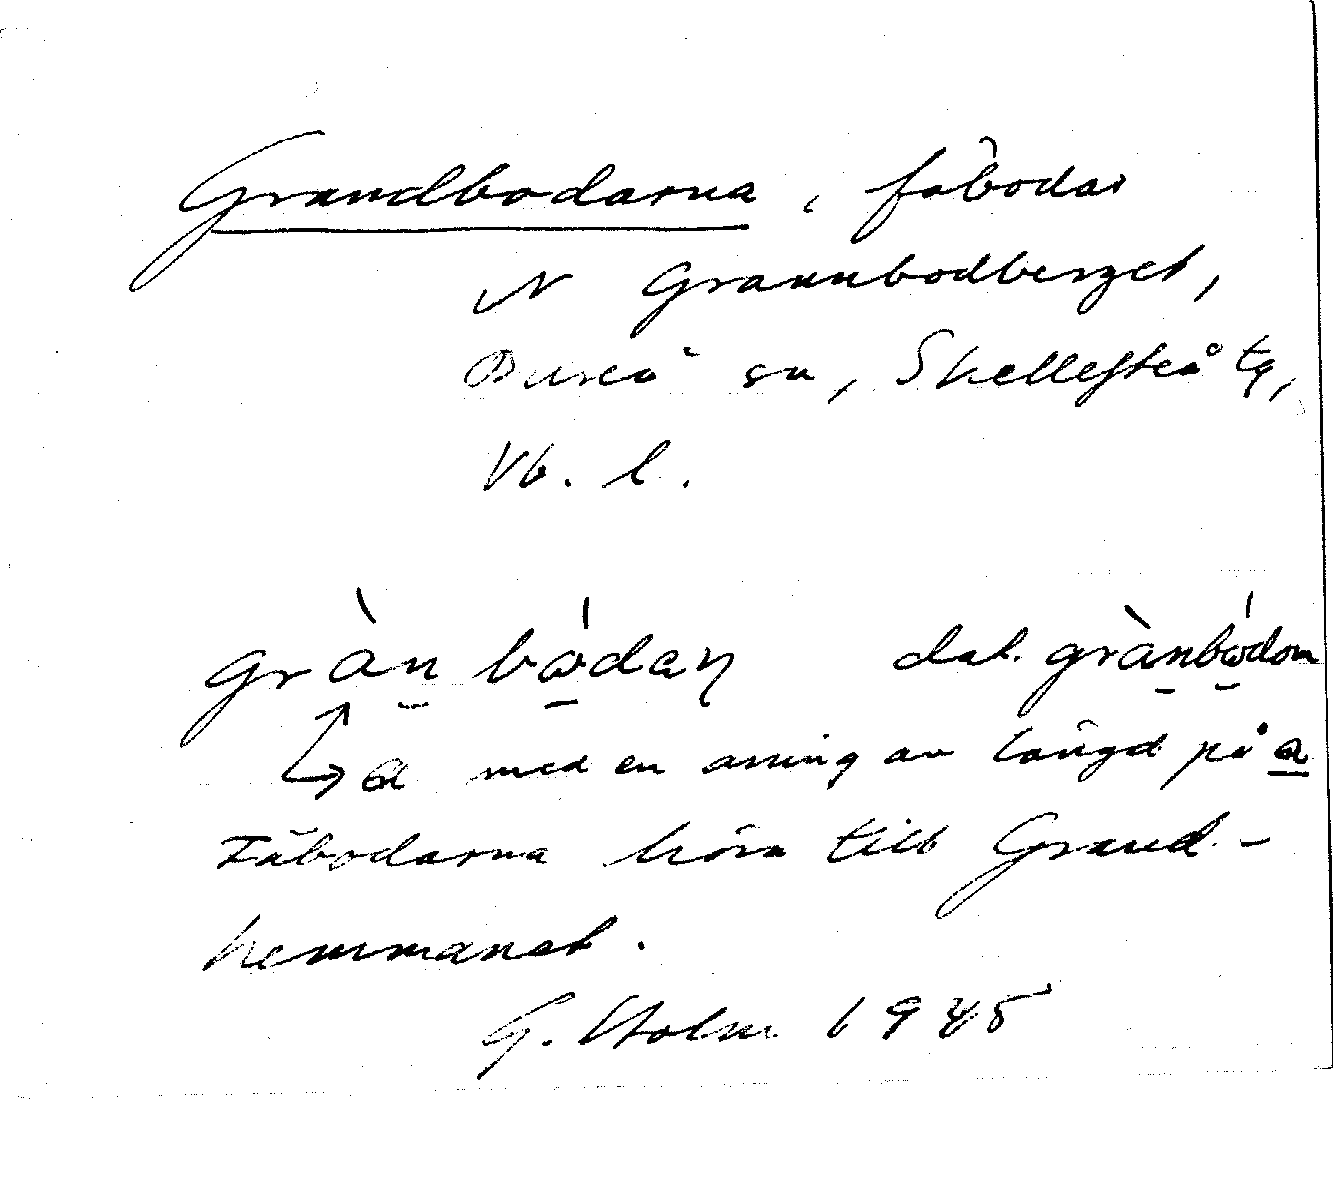 Grundbodarna, fäbodar
N Grannbodberget,
Bureå sn, Skellefteå tg,
Vb. l.
gràn bódaŋ dat. grànbódom
a med en aning av längd på a
Fäbodarna höra till Grund-
hemmanet.
G. Holm 1945